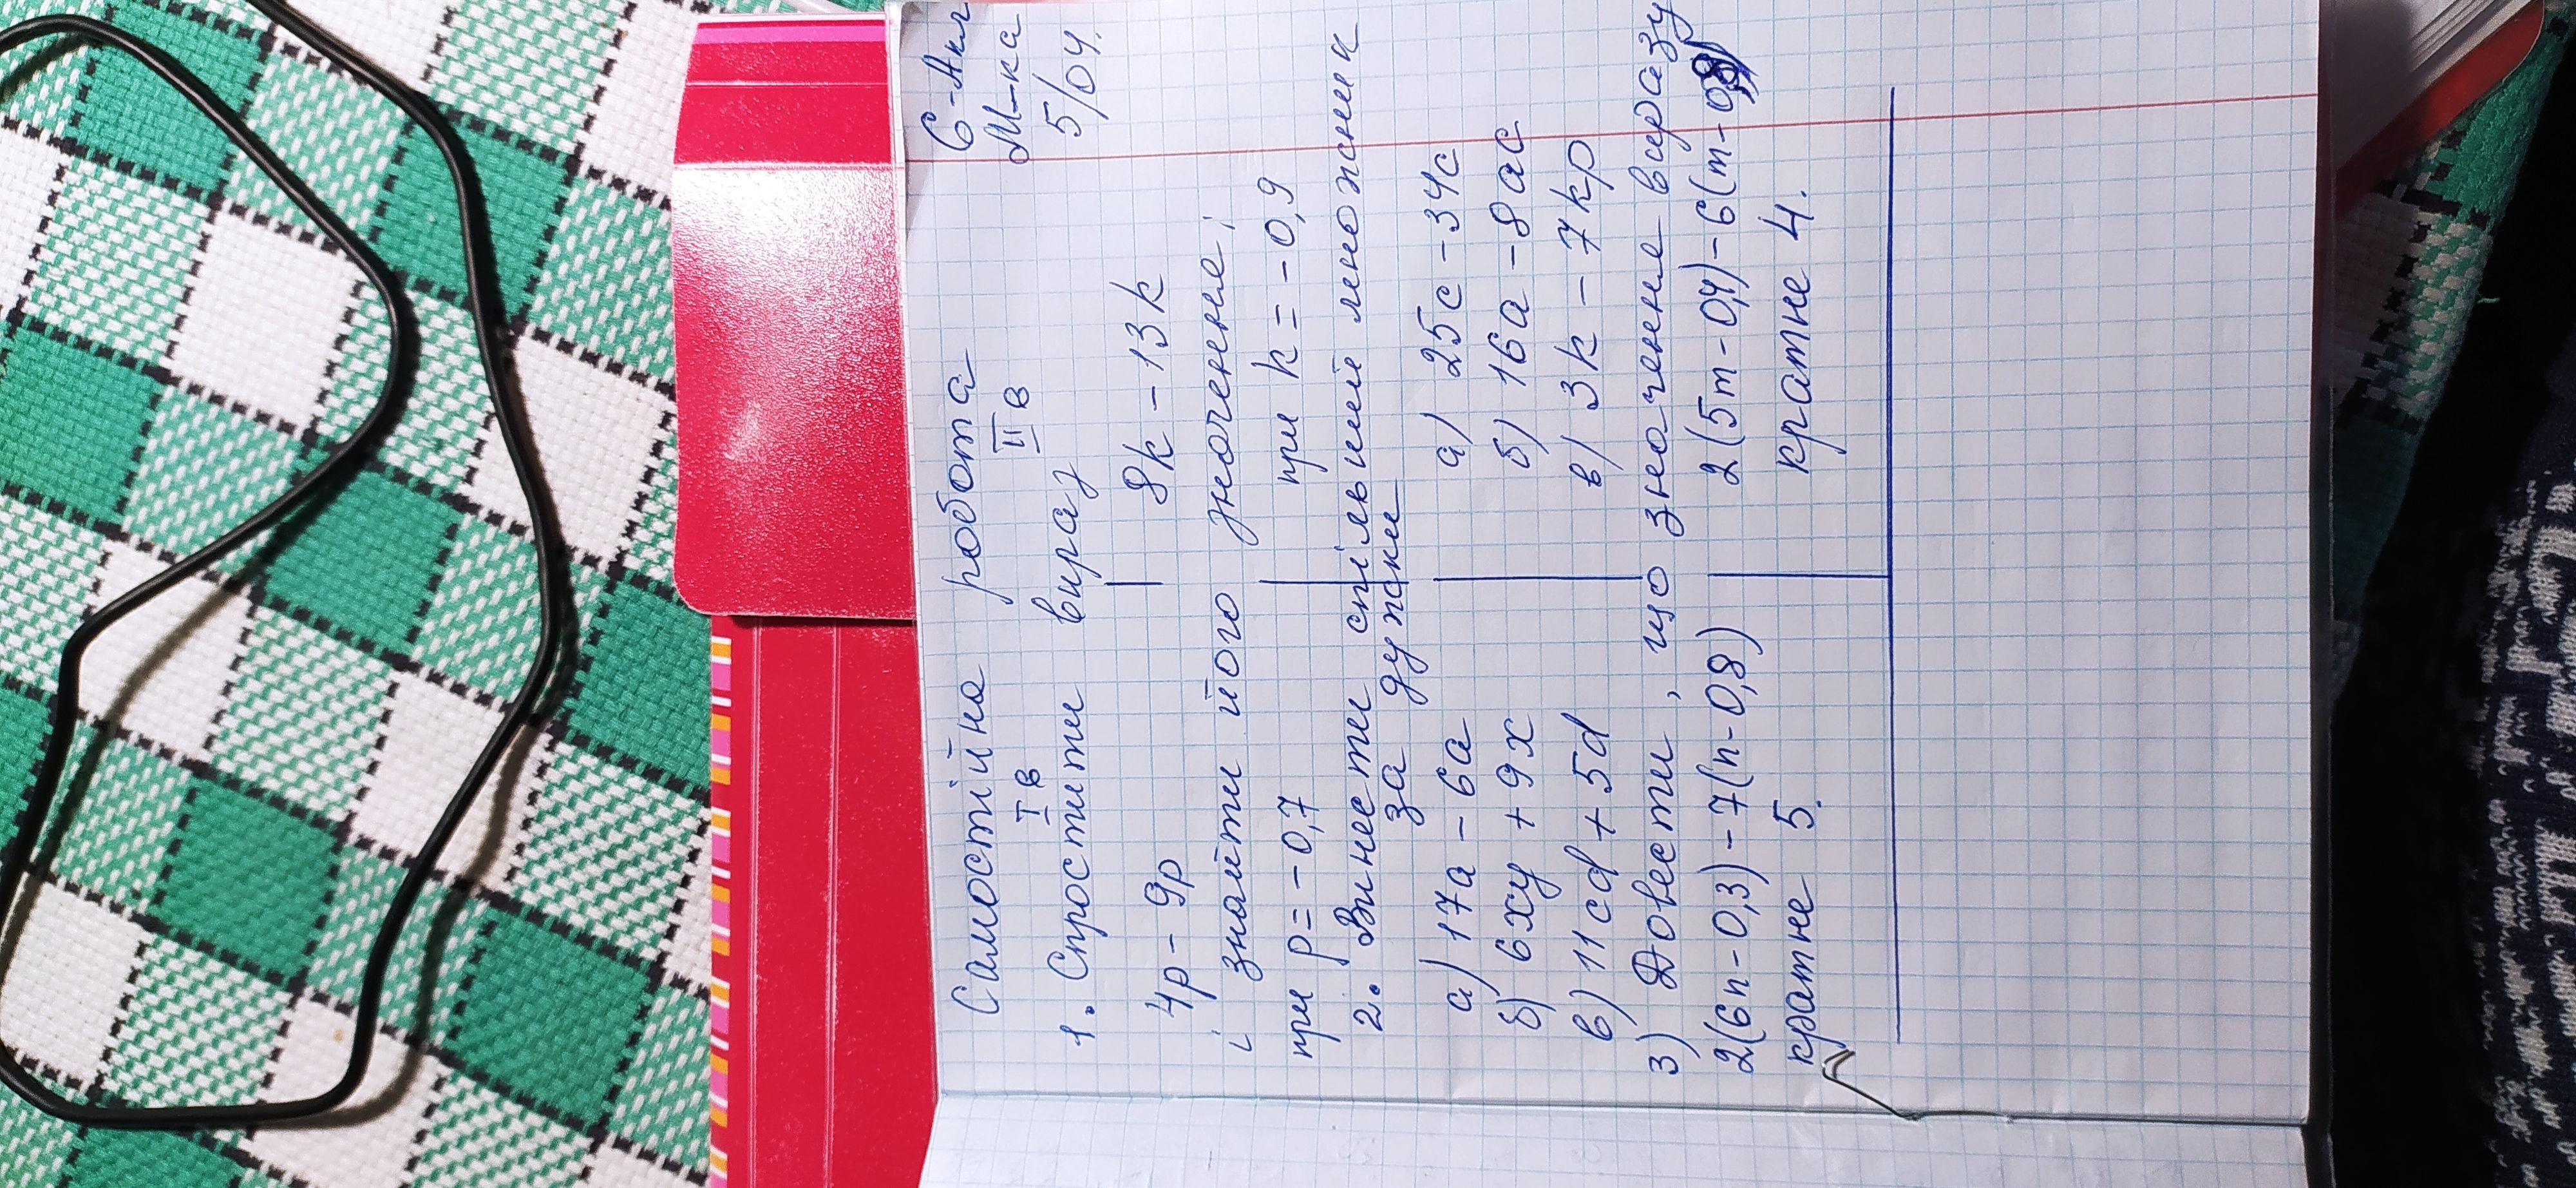 6-А кл
М-ка
5/04.
Самостійна робота
І в ІІ в
1. Спростити вираз
4p - 9p | 8k - 13k
і знайти його значення;
при p = -0,7 | при k = -0,9
2. Винести спільний множник
за дужки
а) 17a - 6a | а) 25c - 34c
б) 6xy + 9x | б) 16a - 8ac
в) 11cd + 5d | в) 3k - 7kp
3) Довести, що значення виразу
2(6n-0,3)-7(n-0,8) | 2(5m-0,4)-6(m-0,8)
кратне 5. кратне 4.